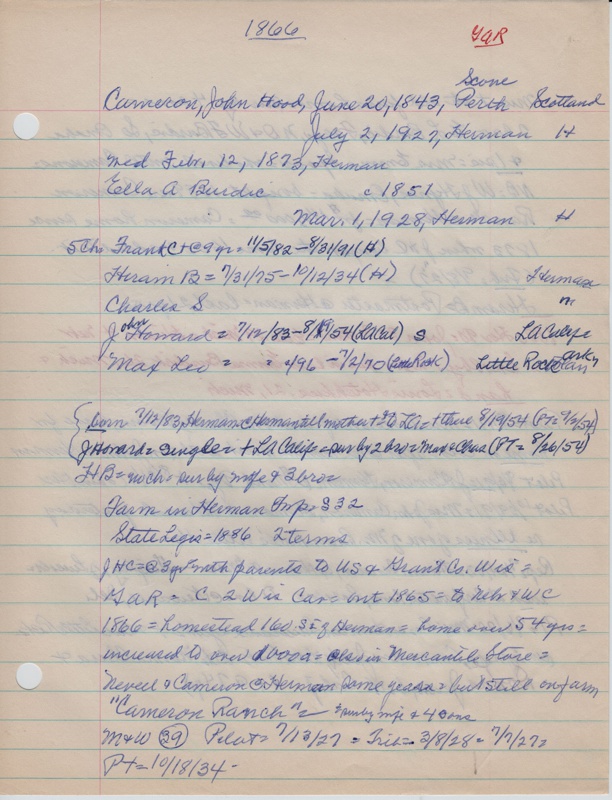 1866 GAR
Scone
Cameron, John Hood, June 20, 1843, Perth Scotland
July 2, 1927, Herman H
Med Febr. 12, 1873, Herman
Ella A. Burdic c 1851
Mar. 1, 1928, Herman H
5 Ch = Frank C + @ 9 yrs = 11/5/82 - 8/31/91 (H)
Hiram B = 7/31/75 - 10/12/34 (H) Herman
Charles S n.
John Howard = 7/12/83 - 8/19/54 (LA Cal) S LA Calif
Max Leo = = /96 - 7/2/70 (Little Rock) Little Rock Ark
born 7/12/83, Herman @ Herman till mother + LA = + there 8/19/54 (PT = 9/2/54)
J Howard = single = + LA Calif = sur by 2 bro = Max + Chas (PT = 8/26/54)
HB = no ch = sur by wife & 3 bro =
Farm in Herman Twp = S 32
State Legis = 1886 2 terms
JHC = @ 3 yr with parents to US & Grant Co. Wis =
GAR = C 2 Wis Cav = out 1865 = to Nebr & WC
1866 = homestead 160 S Herman = home over 54 yrs =
increased to over 1000 a = also in Mercantile Store =
& Cameron @ Herman some years = but still on farm
"Cameron Ranch" = sur by wife & 4 sons
M&W (39) Pilot = 7/13/27 = Trib = 3/8/28 = 7/7/27 =
PT = 10/18/34 -